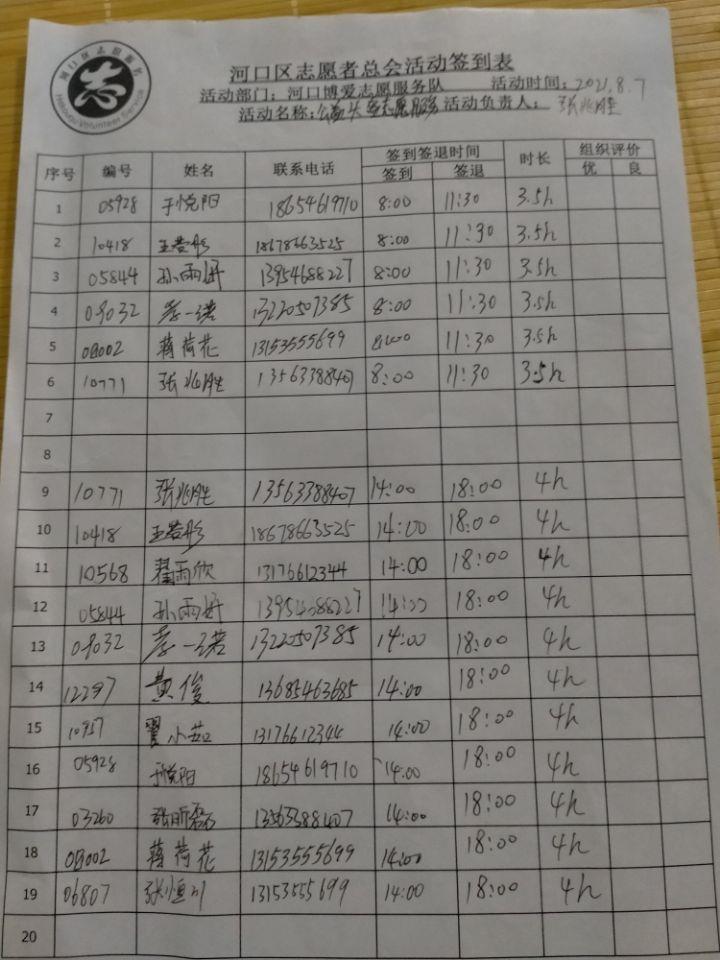 河口区志愿服务
Hekouqu Volunteer Service
河口区志愿者总会活动签到表
活动部门：河口博爱志愿服务队 活动时间：2021.8.7
活动名称：志愿服务 活动负责人：张兆胜
序号 编号 姓名 联系电话 签到签退时间 时长 组织评价
签到 签退 优 良
1 05928 于悦阳 18654619710 8:00 11:30 3.5h
2 10418 王若彤 18678663525 8:00 11:30 3.5h
3 05844 孙雨妍 13954688227 8:00 11:30 3.5h
4 09032 李一诺 13220507385 8:00 11:30 3.5h
5 08002 蒋荷花 13153555699 8:00 11:30 3.5h
6 10771 张兆胜 13563388407 8:00 11:30 3.5h
7
8
9 10771 张兆胜 13563388407 14:00 18:00 4h
10 10418 王若彤 18678663525 14:00 18:00 4h
11 10568 翟雨欣 13176612344 14:00 18:00 4h
12 05844 孙雨妍 13954688227 14:00 18:00 4h
13 09032 李一诺 13220507385 14:00 18:00 4h
14 12297 黄俊 13685463685 14:00 18:00 4h
15 10957 翟小茹 13176612344 14:00 18:00 4h
16 05928 于悦阳 18654619710 14:00 18:00 4h
17 03260 张昕磊 13563388407 14:00 18:00 4h
18 08002 蒋荷花 13153555699 14:00 18:00 4h
19 06807 张恒川 13153555699 14:00 18:00 4h
20